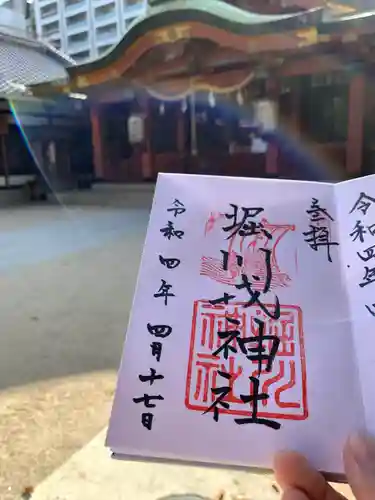 参拝
堀川戎神社
令和四年四月十七日
令和四年